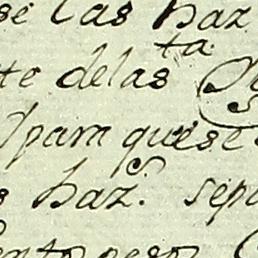 se las haz
ta
te delas
para que se
s haz.s sep
ento peso